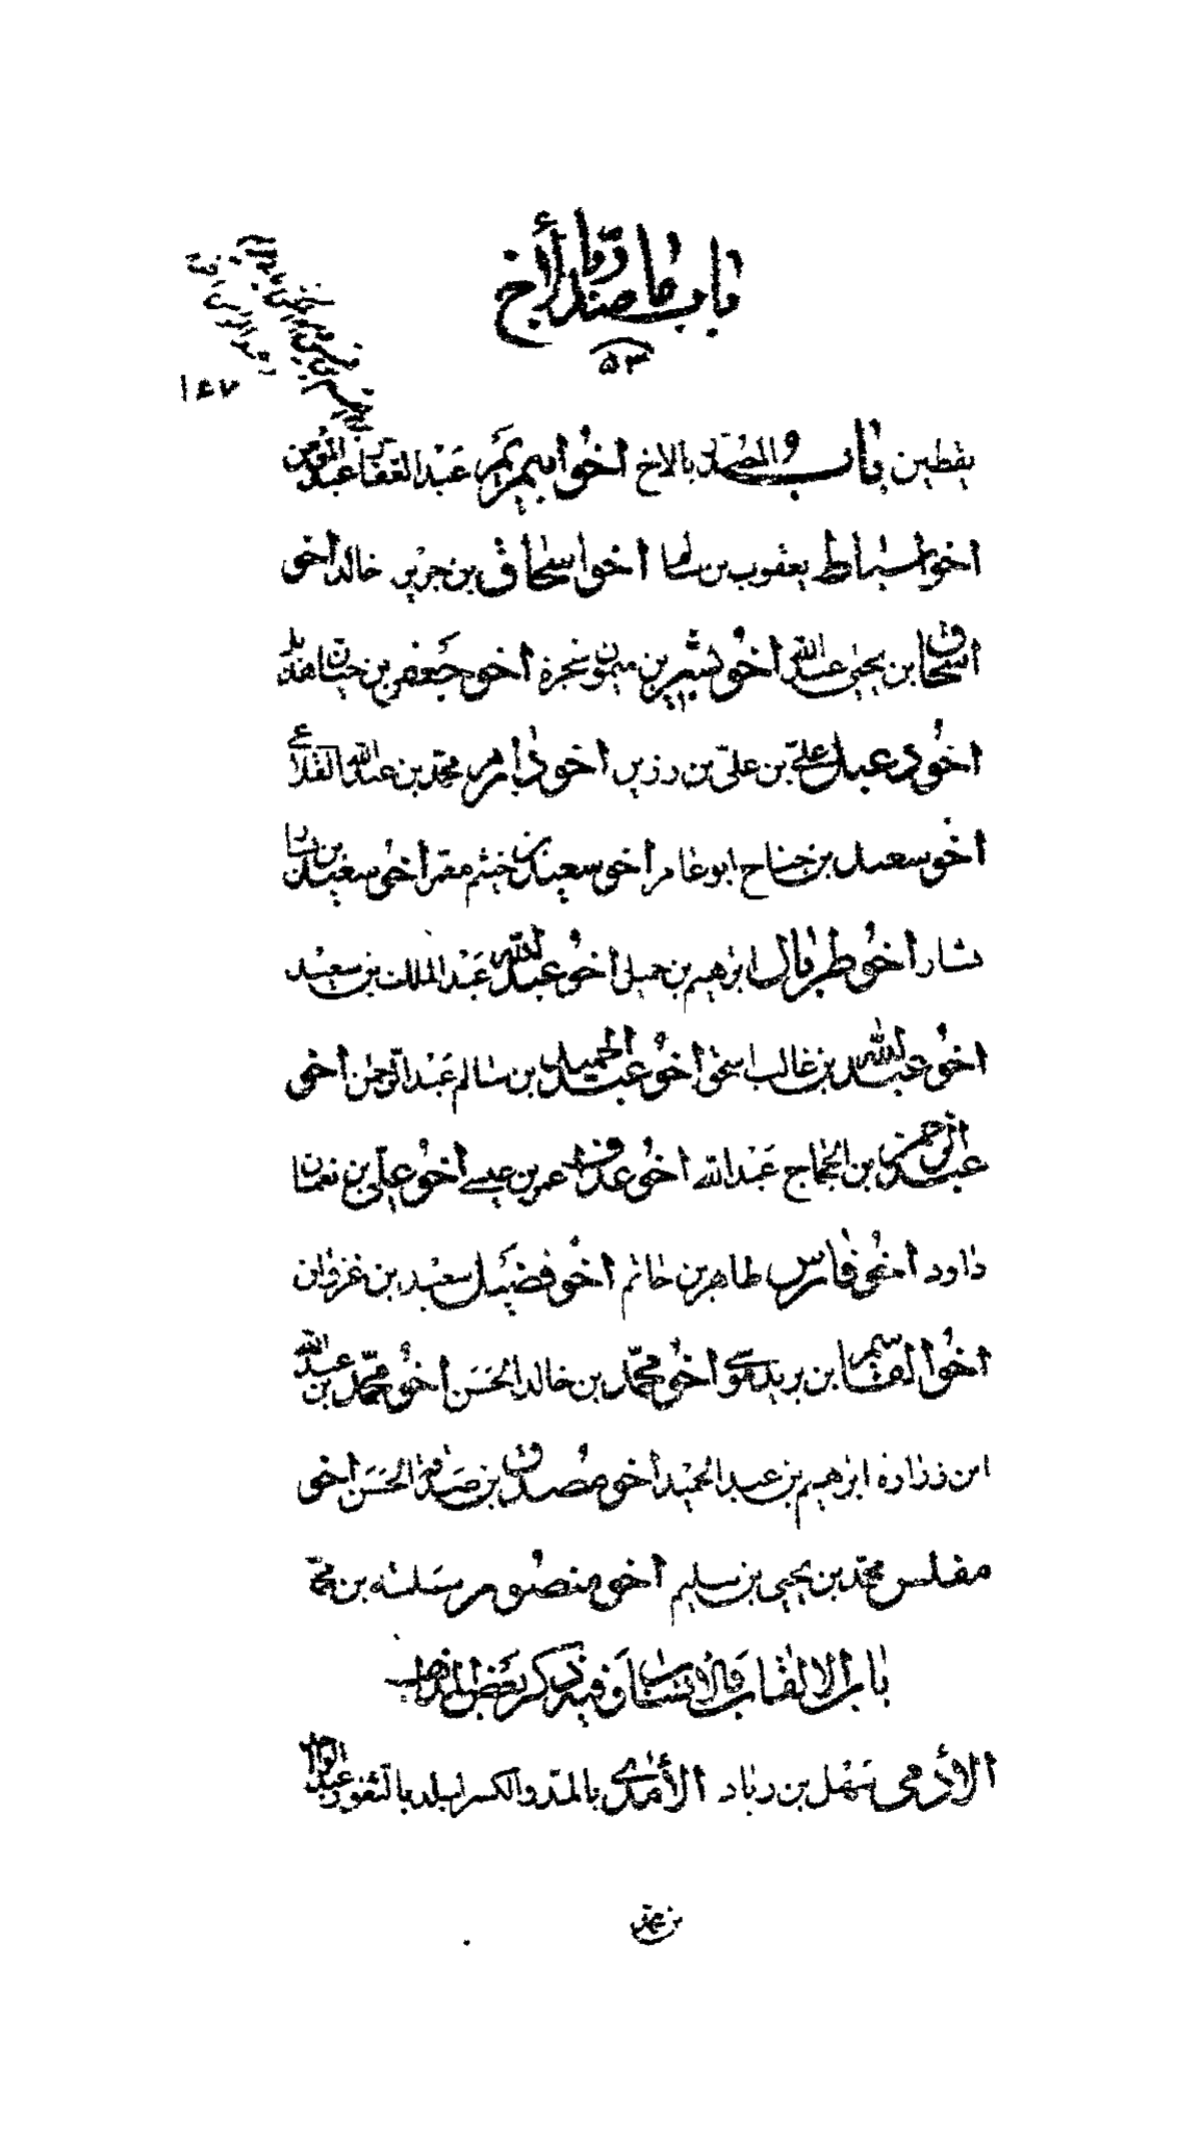 باب ما صدر بأخ
۵۳
۱۶۷
يقطين باب والمصدر بالاخ اخو ابى مريم عبد الغفار عبد المؤمن
اخو اسباط يعقوب بن سالم اخو اسحاق بن جرير خالد اخى
اسحاق بن يحيى عبد الله اخو بشير بن ميمون شجرة اخو جعفر بن حيان هذيل
اخو دعبل علىّ بن علىّ بن رزين اخو دارم محمّد بن عبد الله القلاعى
اخو سعيد بن جناح ابو عامر اخو سعيد بن خيثم معمر اخى سعيد بن
يسار اخو طربال ابرهيم بن جميل اخو عبد الله عبد الملك بن سعيد
اخو عبد الله بن غالب اسحق اخو عبد الحميد بن سالم عبد الرّحمن اخى
عبد الرحمن بن الحجاج عبد الله اخو عذافر عمر بن عيسى اخو علىّ بن نعمان
داود اخو فارس طاهر بن حاتم اخو فضيل سعيد بن غزوان
اخو القاسم بن بريد اخو محمّد بن خالد الحسن اخو محمّد بن عبد الله
ابن زرارة ابرهيم بن عبد الحميد اخو مصدق بن صدقة الحسن اخى
مفلس محمّد بن يحيى بن سليم اخو منصور سلمه بن محمّد
باب الالقاب والانساب وفيه ذكر بعض المذاهب
الآدمى سهل بن زياد الآمدى بالمدّ والكسر لبلد بالثغور عبد الواحد
بن محمّد